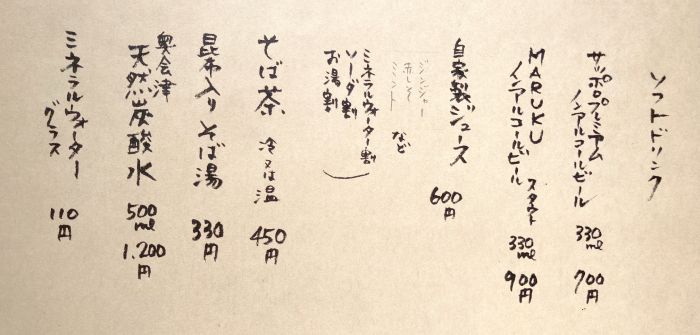 ソフトドリンク
サッポロプレミアム
ノンアルコールビール 330ml 700円
MARUKU スタウト
ノンアルコールビール 330ml 900円
自家製ジュース 600円
ジンジャー
赤しそ
ミント
など
ミネラルウォーター割
ソーダ割
お湯割
そば茶 冷又は温 450円
昆布入りそば湯 330円
奥会津
天然炭酸水 500ml 1.200円
ミネラルウォーター
グラス 110円